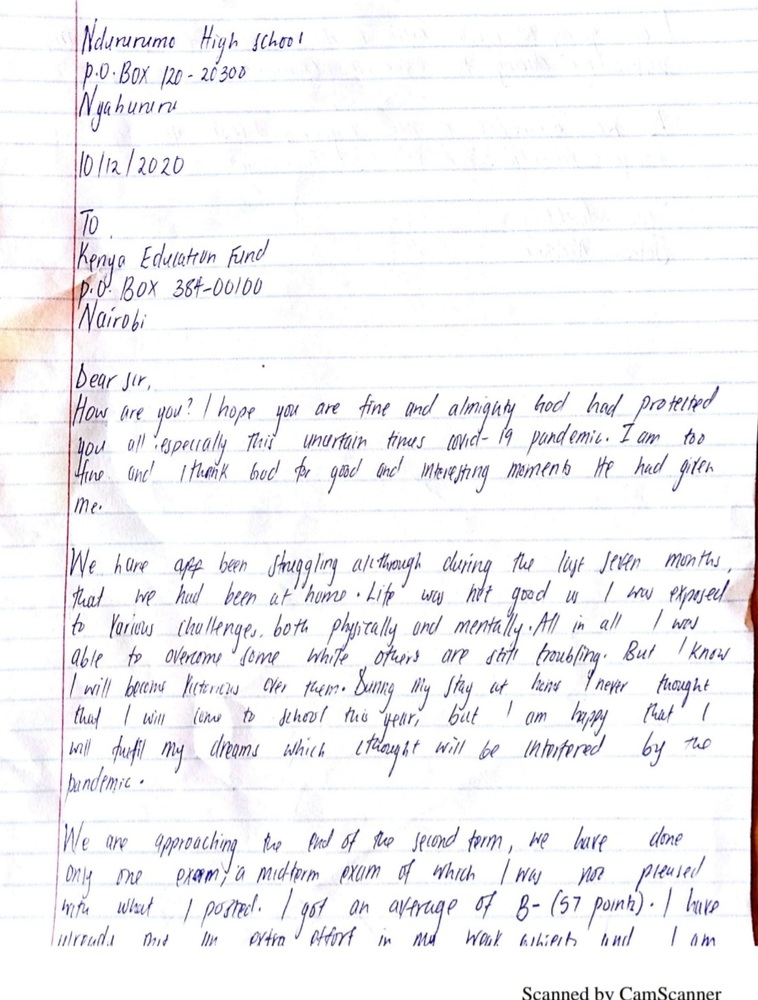 Ndururumo High school
P.O.BOX 120-20300
Nyahururu
10/12/2020
To
Kenya Education Fund
P.O. BOX 384-00100
Nairobi
Dear sir,
How are you? I hope you are fine and almighty God had protected
you all especially this uncertain times covid-19 pandemic. I am too
fine and I thank God for good and interesting moments He had given
me.
We have been struggling all through during the last seven months,
that we had been at home. Life was not good as I was exposed
to various challenges, both physically and mentally. All in all I was
able to overcome some while others are still troubling. But I know
I will become victorious over them. During my stay at home I never thought
that I will come to school this year, but I am happy that I
will fulfil my dreams which I thought will be interfered by the
pandemic.
We are approaching the end of the second term, we have done
only one exam, a midterm exam of which I was not pleased
with what I posted. I got an average of B- (57 points). I have
already put in extra effort in my weak subjects and I am
Scanned by CamScanner